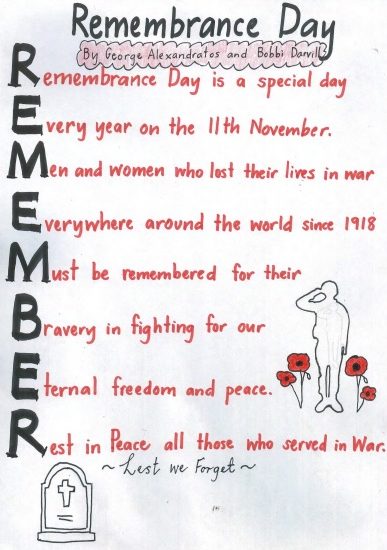 Remembrance Day
By George Alexandratos and Bobbi Darvill
Remembrance Day is a special day
Every year on the 11th November.
Men and women who lost their lives in war
Everywhere around the world since 1918
Must be remembered for their
Bravery in fighting for our
Eternal freedom and peace.
Rest in Peace all those who served in War.
~ Lest we Forget ~